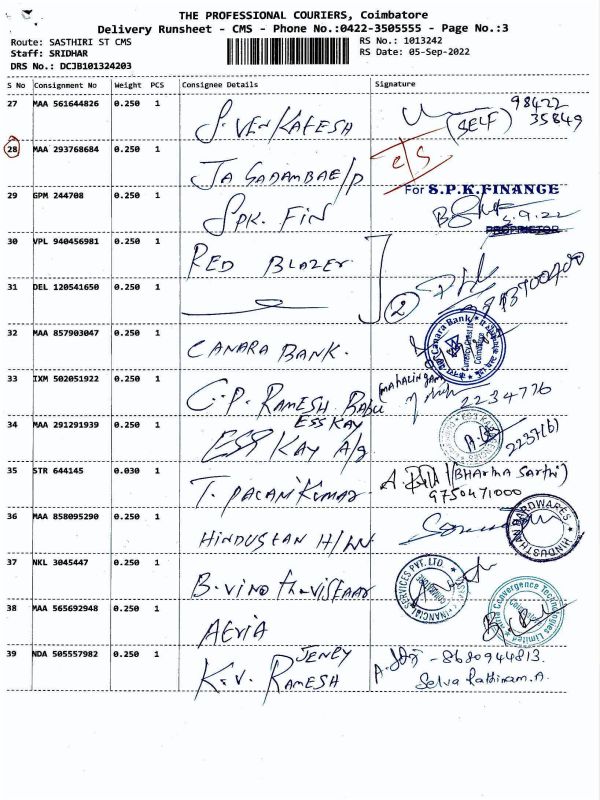 THE PROFESSIONAL COURIERS, Coimbatore
Delivery Runsheet - CMS - Phone No.:0422-3505555 - Page No.:3
Route: SASTHIRI ST CMS RS No.: 1013242
Staff: SRIDHAR RS Date: 05-Sep-2022
DRS No.: DCJB101324203
S No Consignment No Weight PCS Consignee Details Signature
27 MAA 561644826 0.250 1 S. VENKATESH (SELF) 98422
35849
28 MAA 293768684 0.250 1 JAGADAMBAE/P
29 GPM 244708 0.250 1 SPK. FIN For S.P.K.FINANCE
5.9.22
PROPRIETOR
30 VPL 940456981 0.250 1 RED BLAZER
31 DEL 120541650 0.250 1 2
32 MAA 857903047 0.250 1 CANARA BANK. Canara Bank
33 IXM 502051922 0.250 1 C.P. RAMESH BABU (MAHALINGAM)
2234776
34 MAA 291291939 0.250 1 ESS KAY
ESS KAY A/g
35 STR 644145 0.030 1 T. PALANIKUMAR (Bharma Sarthi)
9750471000
36 MAA 858095290 0.250 1 HINDUSTAN H/W HINDUSTHAN HARDWARES
37 NKL 3045447 0.250 1 FINANCIAL SERVICES PVT. LTD.
38 MAA 565692948 0.250 1 AEVIA Convergence Technologies Limited
39 NDA 505557982 0.250 1 JENEY
K.V. RAMESH - 8680944813.
Selva Rathinam.A.